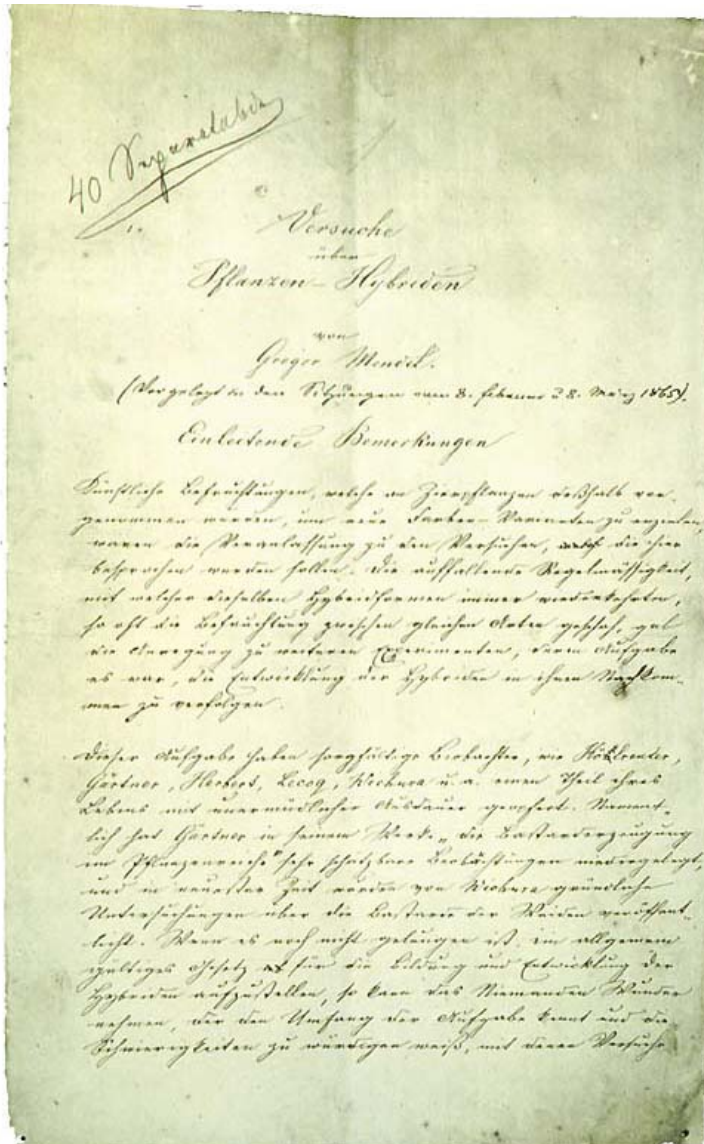 40 Separatabdr.
1.
Versuche
über
Pflanzen-Hybriden
von
Gregor Mendel.
(Vorgelegt in den Sitzungen vom 8. Februar u 8. März 1865).
Einleitende Bemerkungen
Künstliche Befruchtungen, welche an Zierpflanzen deßhalb vor-
genommen wurden, um neue Farben-Varianten zu erzielen,
waren die Veranlassung zu den Versuchen, die hier
besprochen werden sollen. Die auffallende Regelmässigkeit,
mit welcher dieselben Hybridformen immer wiederkehrten,
so oft die Befruchtung zwischen gleichen Arten geschah, gab
die Anregung zu weiteren Experimenten, deren Aufgabe
es war, die Entwicklung der Hybriden in ihren Nachkom-
men zu verfolgen.
Dieser Aufgabe haben sorgfältige Beobachter, wie Kölreuter,
Gärtner, Herbert, Lecoq, Wichura u. a. einen Theil ihres
Lebens mit unermüdlicher Ausdauer geopfert. Nament-
lich hat Gärtner in seinem Werke „die Bastarderzeugung
im Pflanzenreiche" sehr schätzbare Beobachtungen niedergelegt,
und in neuester Zeit wurden von Wichura gründliche
Untersuchungen über die Bastarde der Weiden veröffent-
licht. Wenn es noch nicht gelungen ist, ein allgemein
gültiges Gesetz für die Bildung und Entwicklung der
Hybriden aufzustellen, so kann das Niemanden Wunder
nehmen, der den Umfang der Aufgabe kennt und die
Schwierigkeiten zu würdigen weiß, mit denen Versuche